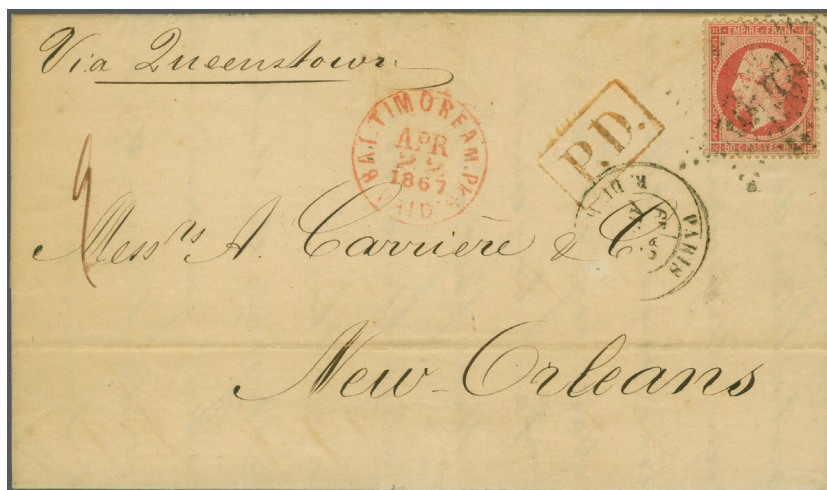 Via Queenstown
EMPIRE FRANC
BALTIMORE AM. PKT.
APR
22
1867
PAID
P.D.
PARIS
Messrs A. Carrière & Co.
New-Orleans